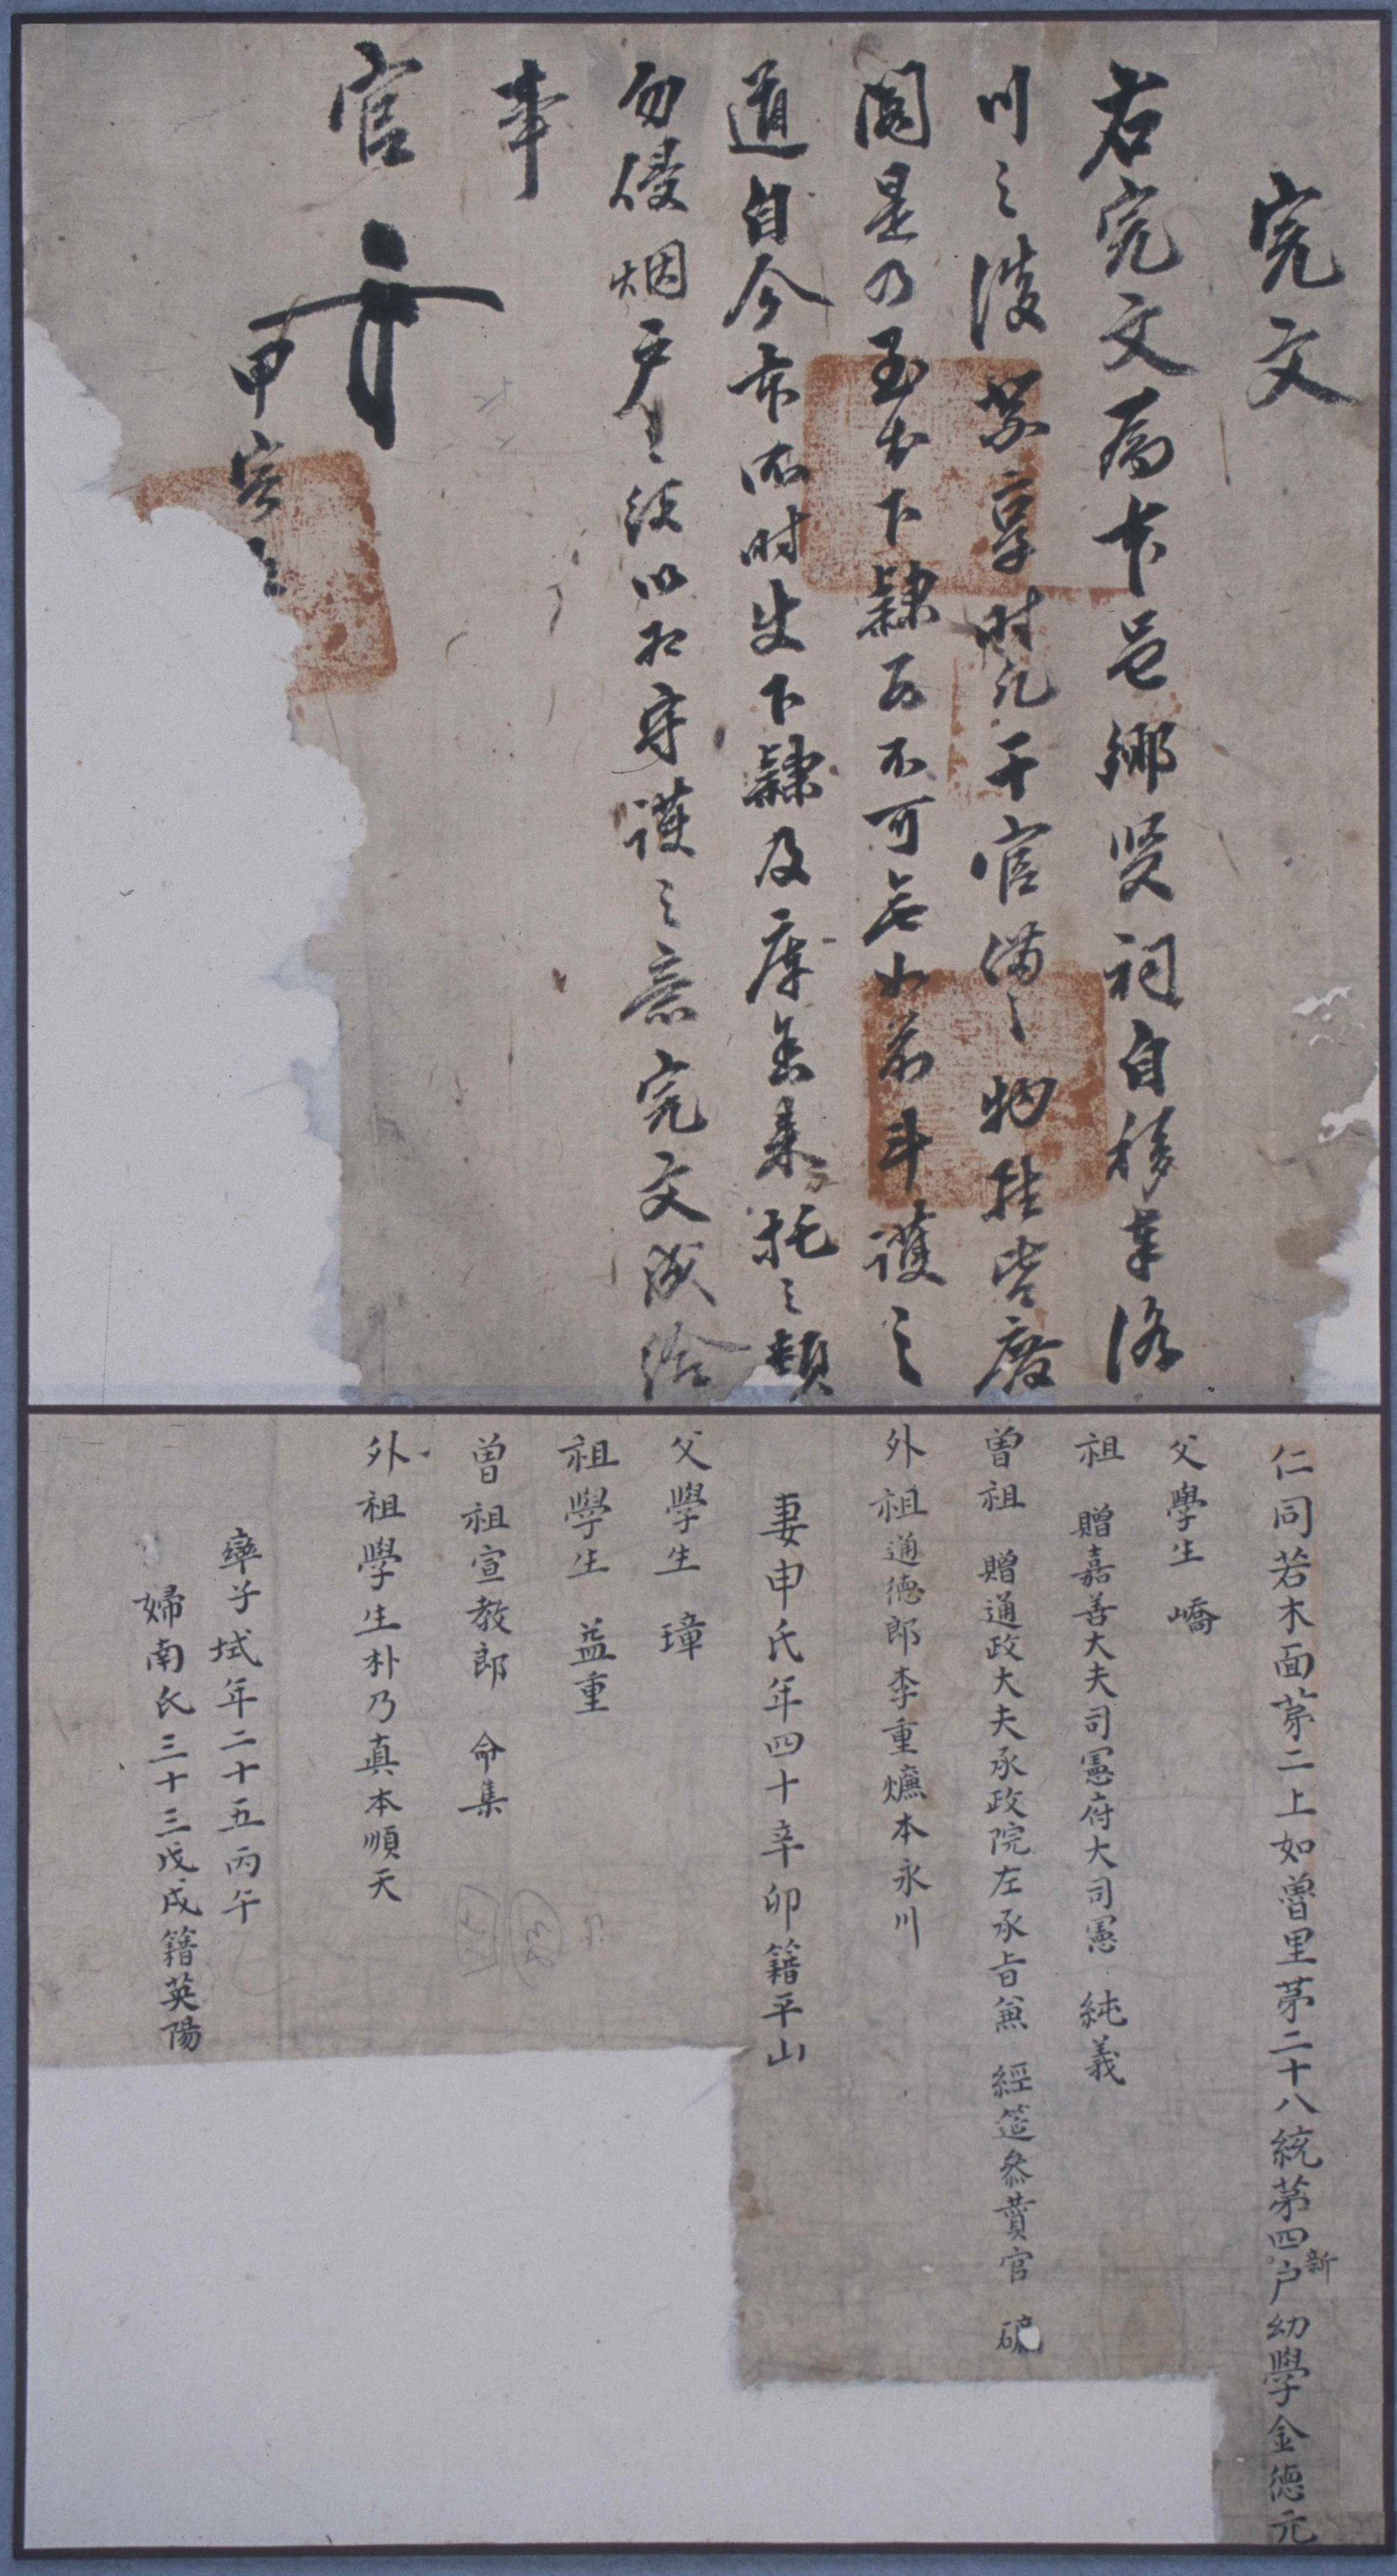 完文
右完文爲本邑鄕賢祠自移奉洛
川之後祭享時凡干官備之物拄皆廢
閣是乃至於下隸而不可無小前斗護之
道自今市所時使下隸及庫舍來托之類
勿侵烟戶之役以扵守護之意完文成給
事
官
甲寅
仁同若木面苐二上如曽里苐二十八統苐四戶幼學金德元
新
父學生 嶠
祖 贈嘉善大夫司憲府大司憲 純義
曽祖 贈通政大夫承政院左承旨兼 經筵叅賛官
外祖通德郎李重爊本永川
妻申氏年四十辛卯籍平山
父學生 璋
祖學生 益重
曽祖宣教郎 命集
外祖學生朴乃真本順天
率子拭年二十五丙午
婦南氏三十三戊戌籍英陽